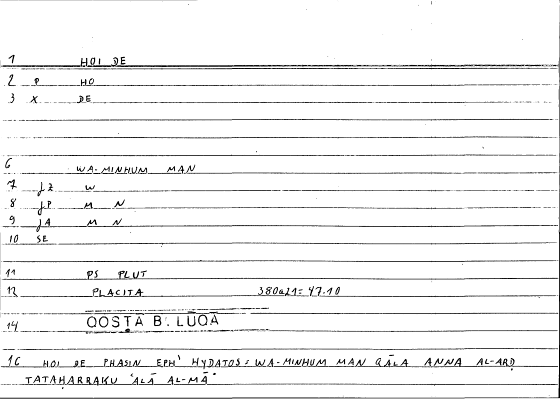 1 HOI DE
2 P HO
3 X DE
6 WA-MINHUM MAN
7 JZ W
8 JP M N
9 JA M N
10 SE
11 PS PLUT
12 PLACITA 380a21= 47.10
14 QOSṬĀ B. LŪQĀ
16 HOI DE PHASIN EPH' HYDATOS = WA-MINHUM MAN QĀLA ANNA AL-ARḌ
TATAḤARRAKU ʿALĀ AL-MĀʾ